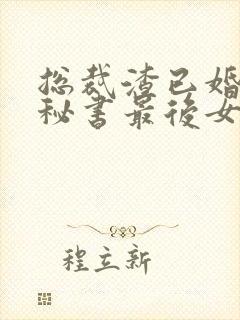 总裁渣已婚
秘书最後女
程立新